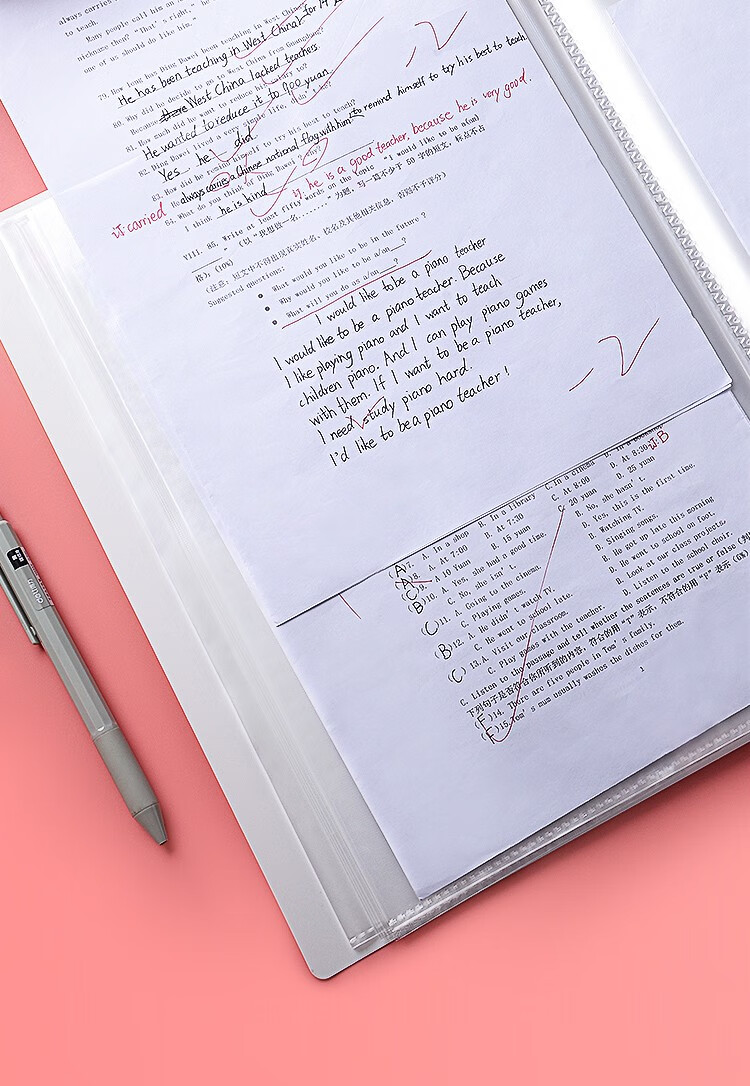 always carries
to teach.
Many people call him an
nickname they! "That's right," he
one of us should do like him."
79. How long has Ding Dawei been teaching in West China?
He has been teaching in West China for 14
80. Why did he decide to go to West China from Guangdong?
Because there West China lacked teachers.
81. How much did he want to reduce his salary to?
He wanted to reduce it to 900 yuan
82. Ding Dawei lived a very simple life, didn't he?
Yes he did
83. How did he remind himself to try his best to teach?
He always carries a Chinese national flag with him to remind himself to try his best to teach
订·carried
84. What do you think of Ding Dawei? Why?
I think he is kind
订. he is a good teacher, because he is very good.
VIII. 85. Write at least fifty words on the topic "I would like to be a(an)
" (以"我想做一名………"为题, 写一篇不少于 50 字的短文, 标点不占
格); (10%)
(注意: 短文中不得出现真实姓名、校名及其他相关信息, 否则不予评分)
Suggested questions:
● What would you like to be in the future ?
● Why would you like to be a/an ?
● What will you do as a/an ?
I would like to be a piano teacher
I would like to be a piano teacher. Because
I like playing piano and I want to teach
children piano. And I can play piano games
with them. If I want to be a piano teacher,
I need study piano hard.
I'd like to be a piano teacher!
-2
-2
(A)7. A. In a shop B. In a library C. In a cinema D. In a bookshop
(A)8. A. At 7:00 B. At 7:30 C. At 8:00 D. At 8:30 订·B
(C)9. A 10 Yuan B. 15 yuan C. 20 yuan D. 25 yuan
(B)10. A. Yes, she had a good time. B. No, she hasn't.
C. No, she isn't. D. Yes, this is the first time.
(C)11. A. Going to the cinema. B. Watching TV.
C. Playing games. D. Singing songs.
(B)12. A. He didn't watch TV. B. He got up late this morning
C. He went to school late. D. He went to school on foot.
(C)13. A. Visit our classroom. B. Look at our class projects.
C. Play games with the teacher. D. Listen to the school choir.
C. Listen to the passage and tell whether the sentences are true or false (判
下列句子是否符合你所听到的内容, 符合的用"T"表示, 不符合的用"F"表示 (6%)
(F)14. There are five people in Tom's family.
(F)15. Tom's mum usually washes the dishes for them.
3
deli